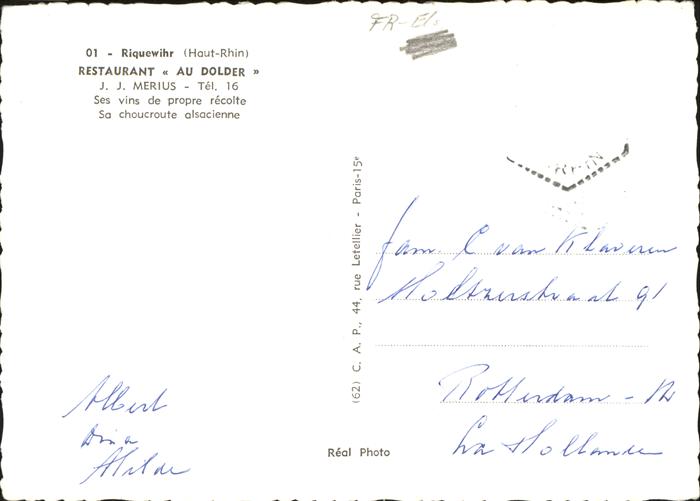 FR-Els
01 - Riquewihr (Haut-Rhin)
RESTAURANT « AU DOLDER »
J. J. MERIUS - Tél. 16
Ses vins de propre récolte
Sa choucroute alsacienne
(62) C. A. P., 44, rue Letellier - Paris-15e
fam. C van Klaveren
Holtzerstraat 91
Rotterdam -
Hollande
Albert
Dina
Réal Photo